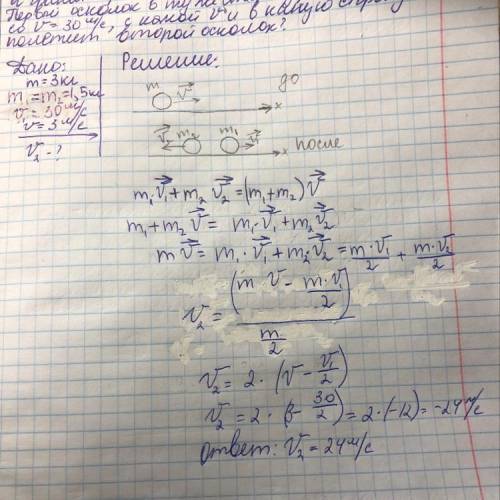 Первый осколок в ту же
со v = 30 м/с, с какой v и в какую сторону
полетит второй осколок?
Дано:
m = 3кг
m₁ = m₂ = 1,5кг
v₁ = 30 м/с
v = 3 м/с
v₂ - ?
Решение:
до
m v⃗
x
v⃗ m₂ m₁ v⃗
x после
m₁v⃗₁ + m₂v⃗₂ = (m₁ + m₂)v⃗
m₁ + m₂ v⃗ = m₁·v⃗₁ + m₂v⃗₂
m v⃗ = m₁·v⃗₁ + m₂·v⃗₂ = m·v₁/2 + m·v₂/2
v₂ = (m·v - m·v₁/2) / (m/2)
v₂ = 2·(v - v₁/2)
v₂ = 2·(3 - 30/2) = 2·(-12) = -24 м/с
Ответ: v₂ = 24 м/с